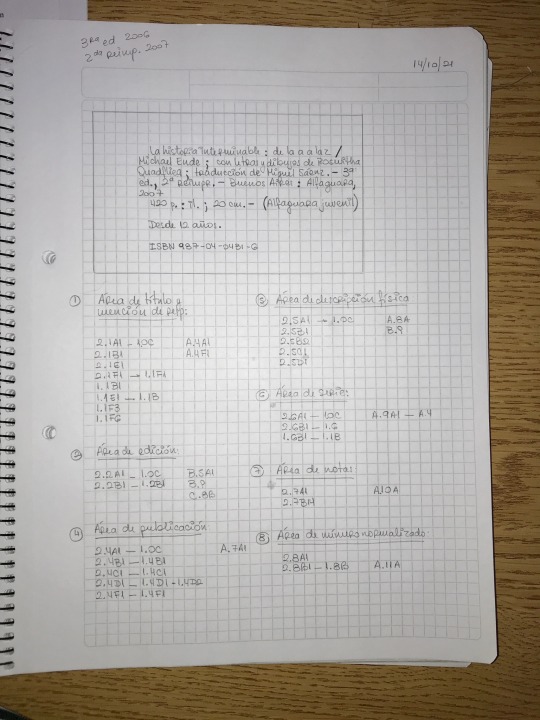 3ra ed 2006
2da reimp. 2007
14/10/21
La historia interminable : de la a a la z /
Michael Ende ; con letras y dibujos de Roswitha
Quadflieg ; traducción de Miguel Sáenz. - 3ª
ed., 2ª reimpr. - Buenos Aires : Alfaguara,
2007
420 p. : il. ; 20 cm. - (Alfaguara juvenil)
Desde 12 años.
ISBN 987-04-0481-6
① Área de título y
mención de resp:
2.1A1 - 1.0C A.4A1
2.1B1 A.4F1
2.1E1
2.1F1 → 1.1F1
1.1B1
1.1E1 - 1.1B
1.1F3
1.1F6
② Área de edición:
2.2A1 - 1.0C B.5A1
2.2B1 - 1.2B1 B.9
C.8B
④ Área de publicación
2.4A1 - 1.0C A.7A1
2.4B1 - 1.4B1
2.4C1 - 1.4C1
2.4D1 - 1.4D1 - 1.4D2
2.4F1 - 1.4F1
⑤ Área de descripción física
2.5A1 → 1.0C A.8A
2.5B1 B.9
2.5B2
2.5C1
2.5D1
⑥ Área de serie:
2.6A1 - 1.0C A.9A1 - A.4
2.6B1 - 1.6
1.6B1 - 1.1B
⑦ Área de notas
2.7A1 A.10A
2.7B14
⑧ Área de número normalizado
2.8A1
2.8B1 - 1.8B A.11A